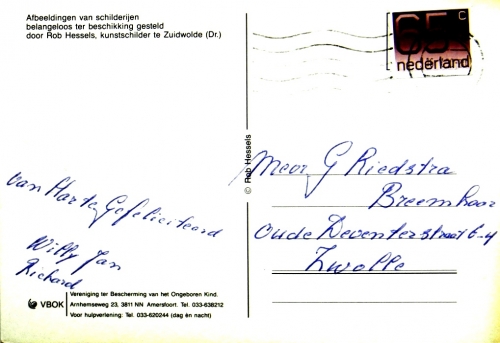 Afbeeldingen van schilderijen
belangeloos ter beschikking gesteld
door Rob Hessels, kunstschilder te Zuidwolde (Dr.)
65 c
nederland
© Rob Hessels
van Harte Gefeliciteerd
Willy Jan
Richard
Mevr G Riedstra
Breemhaar
Oude Deventerstraat 6-4
Zwolle
VBOK
Vereniging ter Bescherming van het Ongeboren Kind.
Arnhemseweg 23, 3811 NN Amersfoort. Tel. 033-638212
Voor hulpverlening: Tel. 033-620244 (dag én nacht)